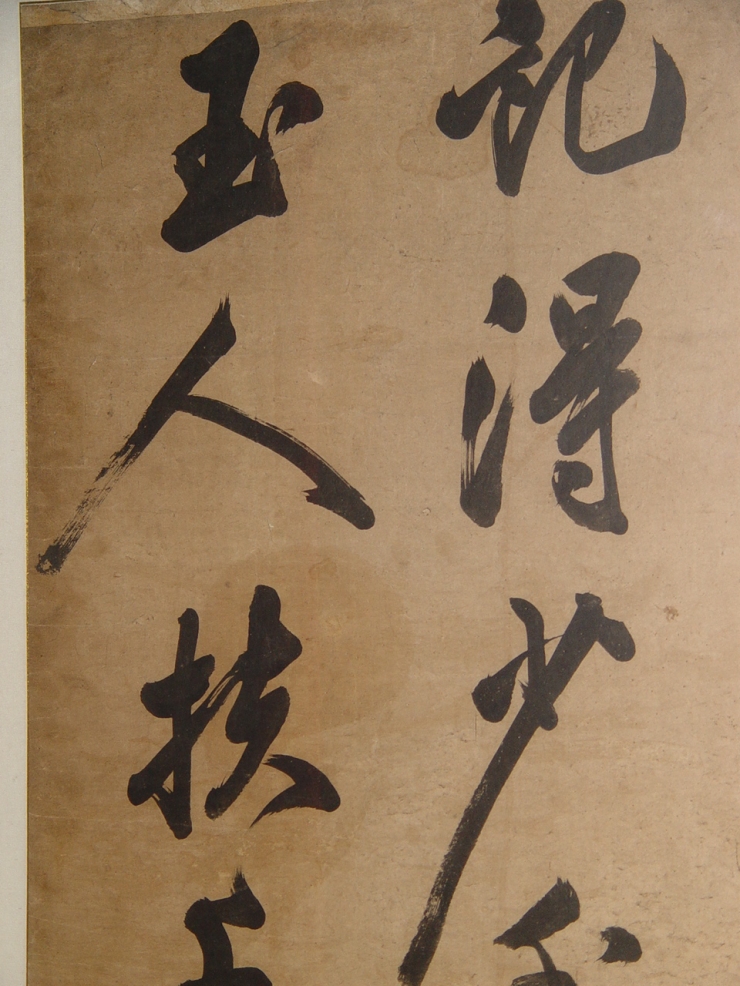 記得少
玉人扶